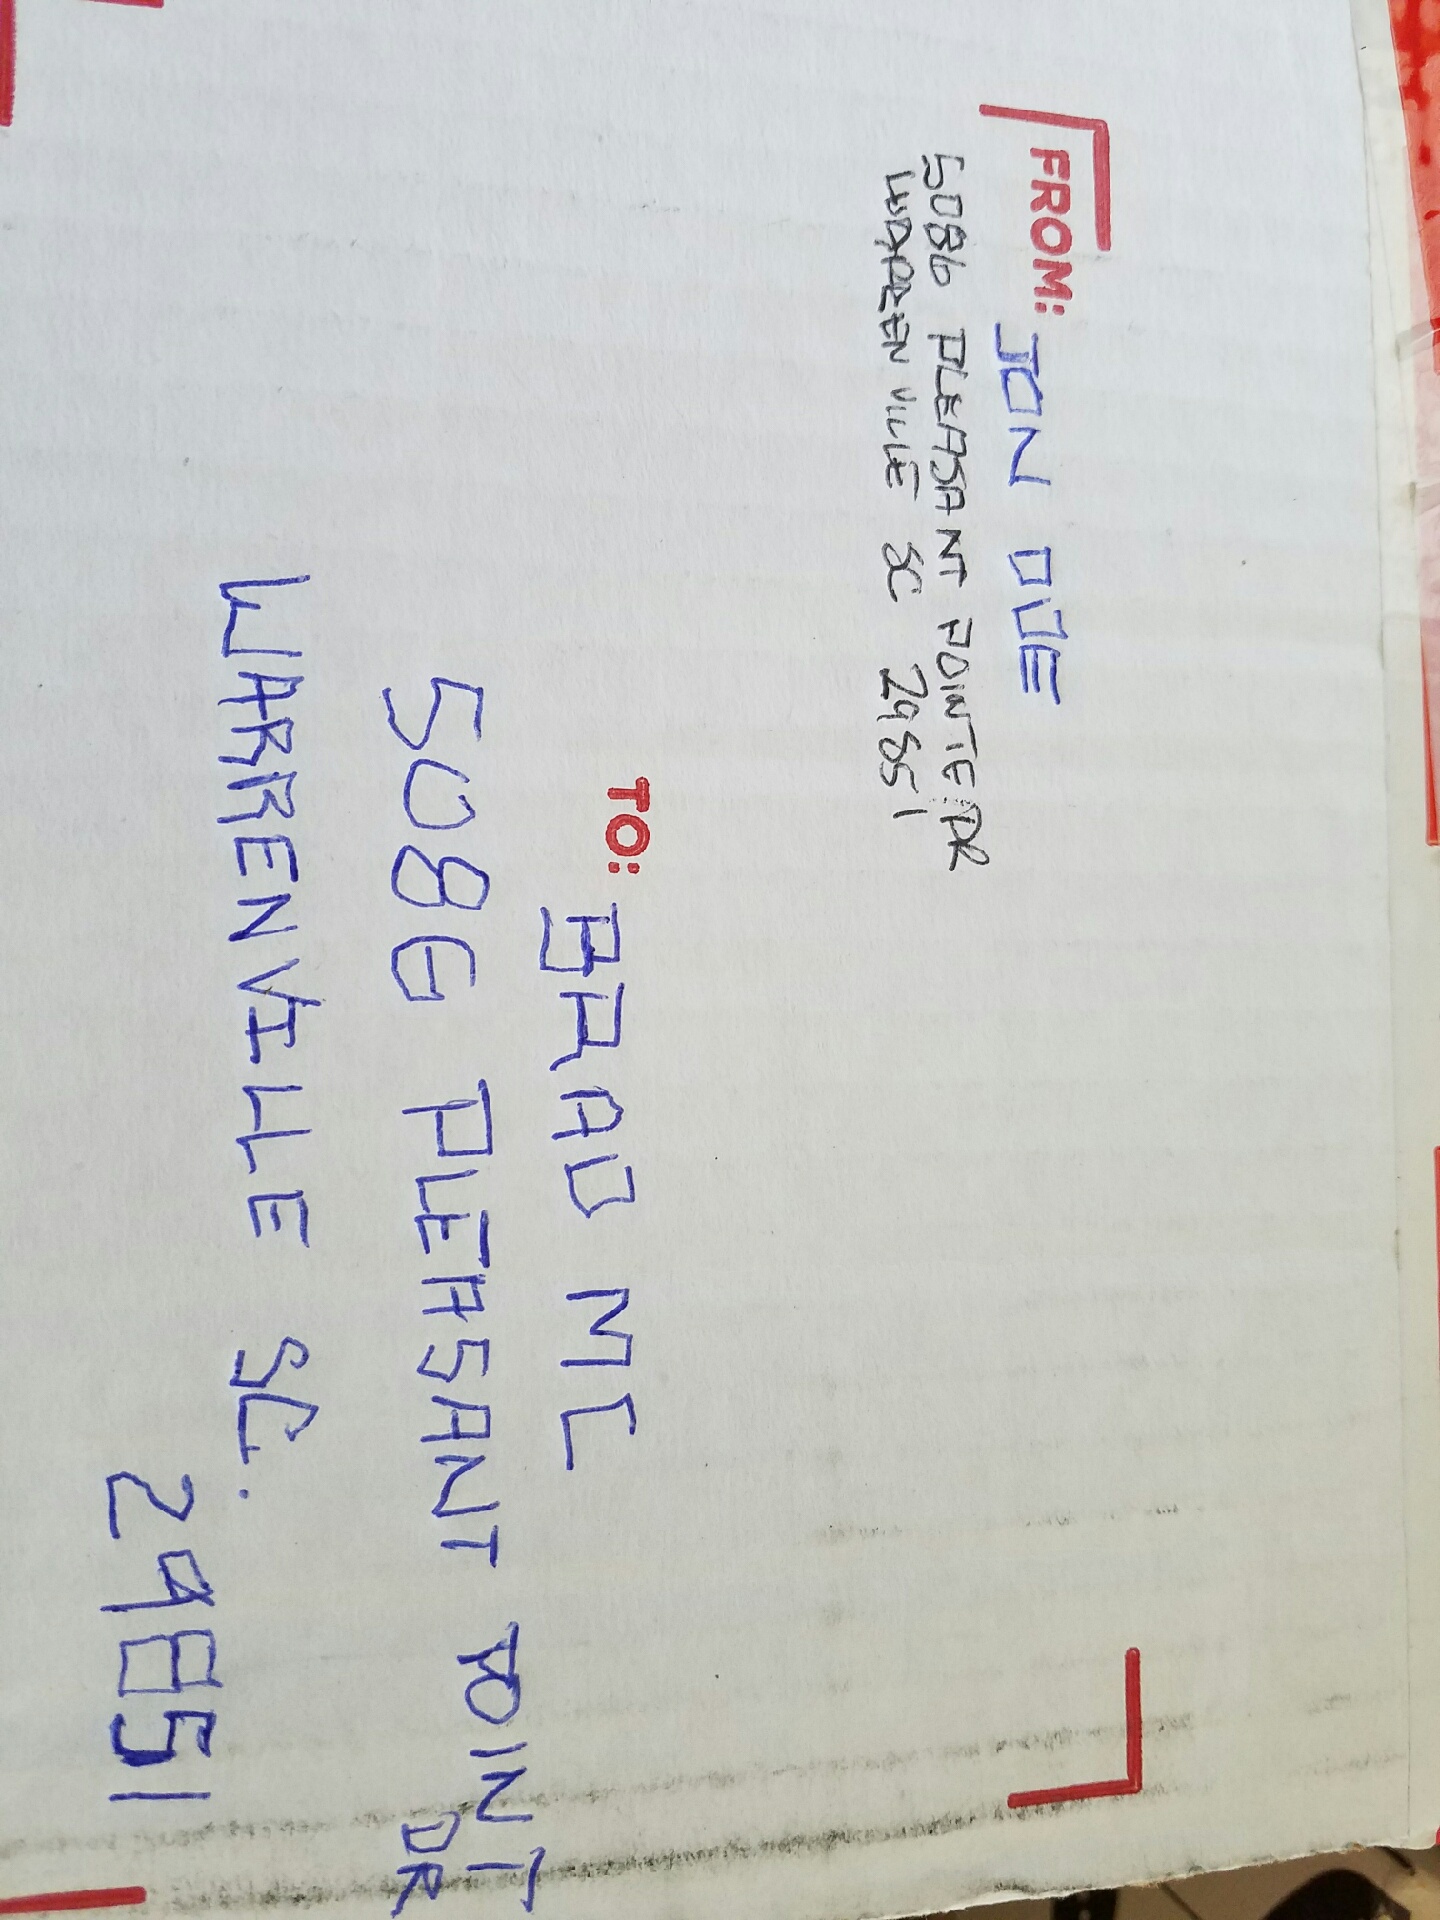 FROM: JON DOE
5086 PLEASANT POINTE DR
WARRENVILLE SC 29851
TO: BRAD MC
5086 PLEASANT POINT
DR
WARRENVILLE SC.
29851